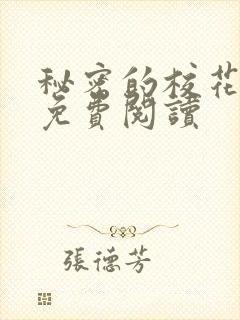 秘密的校花
免費閱讀
張德芳